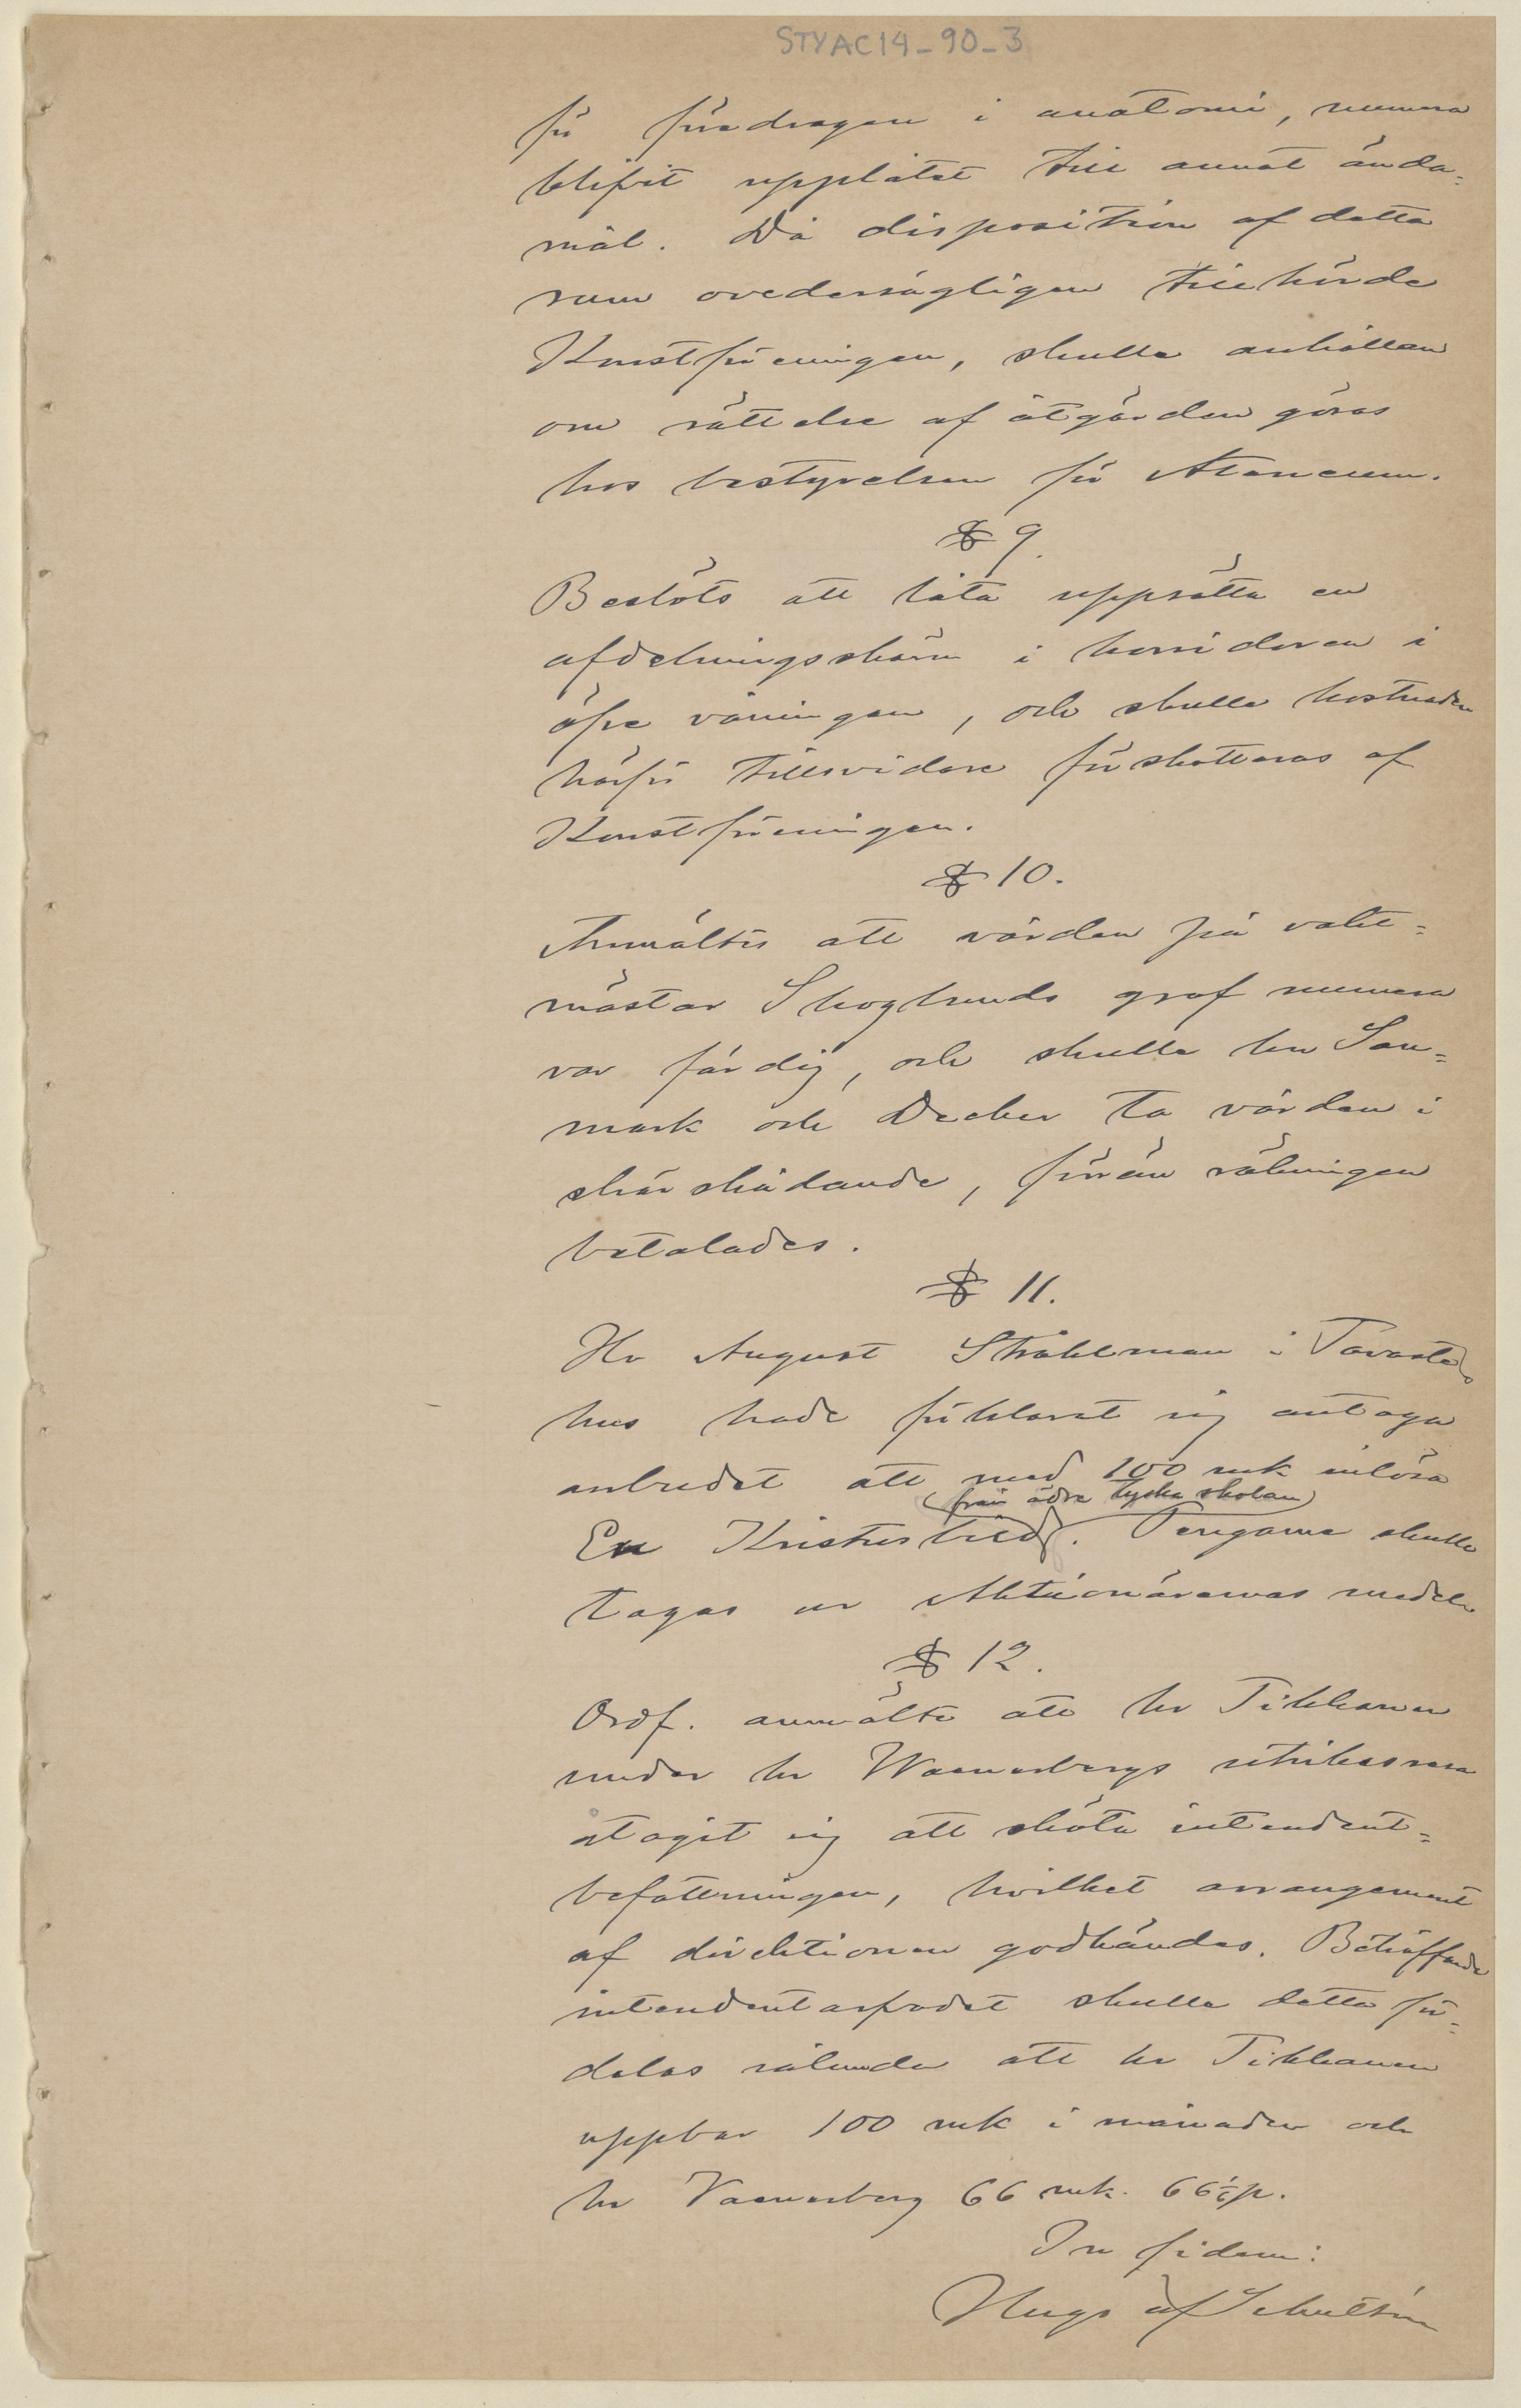 STYAC14_90_3
för föredragen i anatomi, numera
blifvit upplåtet till annat ända=
mål. Då disposition af detta
rum ovedersägligen tillhörde
Konstföreningen, skulle anhållan
om rättelse af åtgärden göras
hos bestyrelsen för Ateneum.
§ 9.
Beslöts att låta uppsätta en
afdelningsskärm i korridoren i
öfre våningen, och skulle kostnaden
härför tillsvidare förskotteras af
Konstföreningen.
§ 10.
Anmältes att vården på vakt=
mästar Skoglunds graf numera
var färdig, och skulle hrr San=
mark och Decker ta vården i
skärskådande, förrän räkningen
betalades.
§ 11.
Hr August Stråhlman i Tavaste
hus hade förklarat sig antaga
anbudet att med 100 mk inlösa
(från äldre tyska skolan)
En Kristusbild. Pengarne skulle
tagas ur Aktionärernas medel.
§ 12.
Ordf. anmälte att hr Tikkanen
under hr Waenerbergs utrikesresa
åtagit sig att sköta intendent=
befattningen, hvilket arrangement
af direktionen godkändes. Beträffande
intendentarfvodet skulle detta för=
delas sålunda att hr Tikkanen
uppbar 100 mk i månaden och
hr Vaenerberg 66 mk. 66 p.
In fidem:
Hugo af Schultén